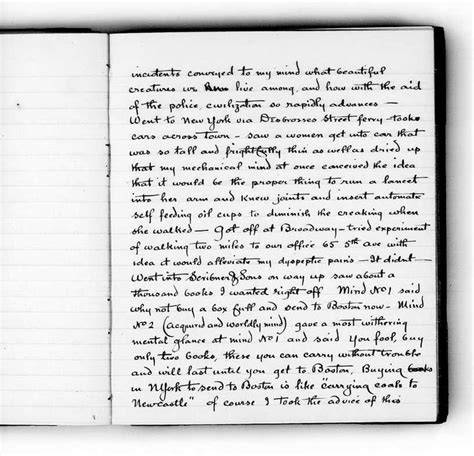 incidents conveyed to my mind what beautiful
creatures we live among, and how with the aid
of the police, civilization so rapidly advances —
Went to New York via Desbrosses Street ferry – took
cars across town – saw a women get into car that
was so tall and frightfully thin as well as dried up
that my mechanical mind at once conceived the idea
that it would be the proper thing to run a lancet
into her arm and knee joints and insert automatic
self feeding oil cups to diminish the creaking when
she walked – Got off at Broadway – tried experiment
of walking two miles to our office 65 5th Ave with
idea it would alleviate my dyspeptic pains – It didnt
Went into Scribner & Sons on way up saw about a
thousand books I wanted right off Mind No 1 said
why not buy a box full and send to Boston now – Mind
No 2 (acquired and worldly mind) gave a most withering
mental glance at mind No 1 and said You fool, buy
only two books, these you can carry without trouble
and will last until you get to Boston. Buying books
in NYork to send to Boston is like "carrying coals to
Newcastle" of course I took the advice of this